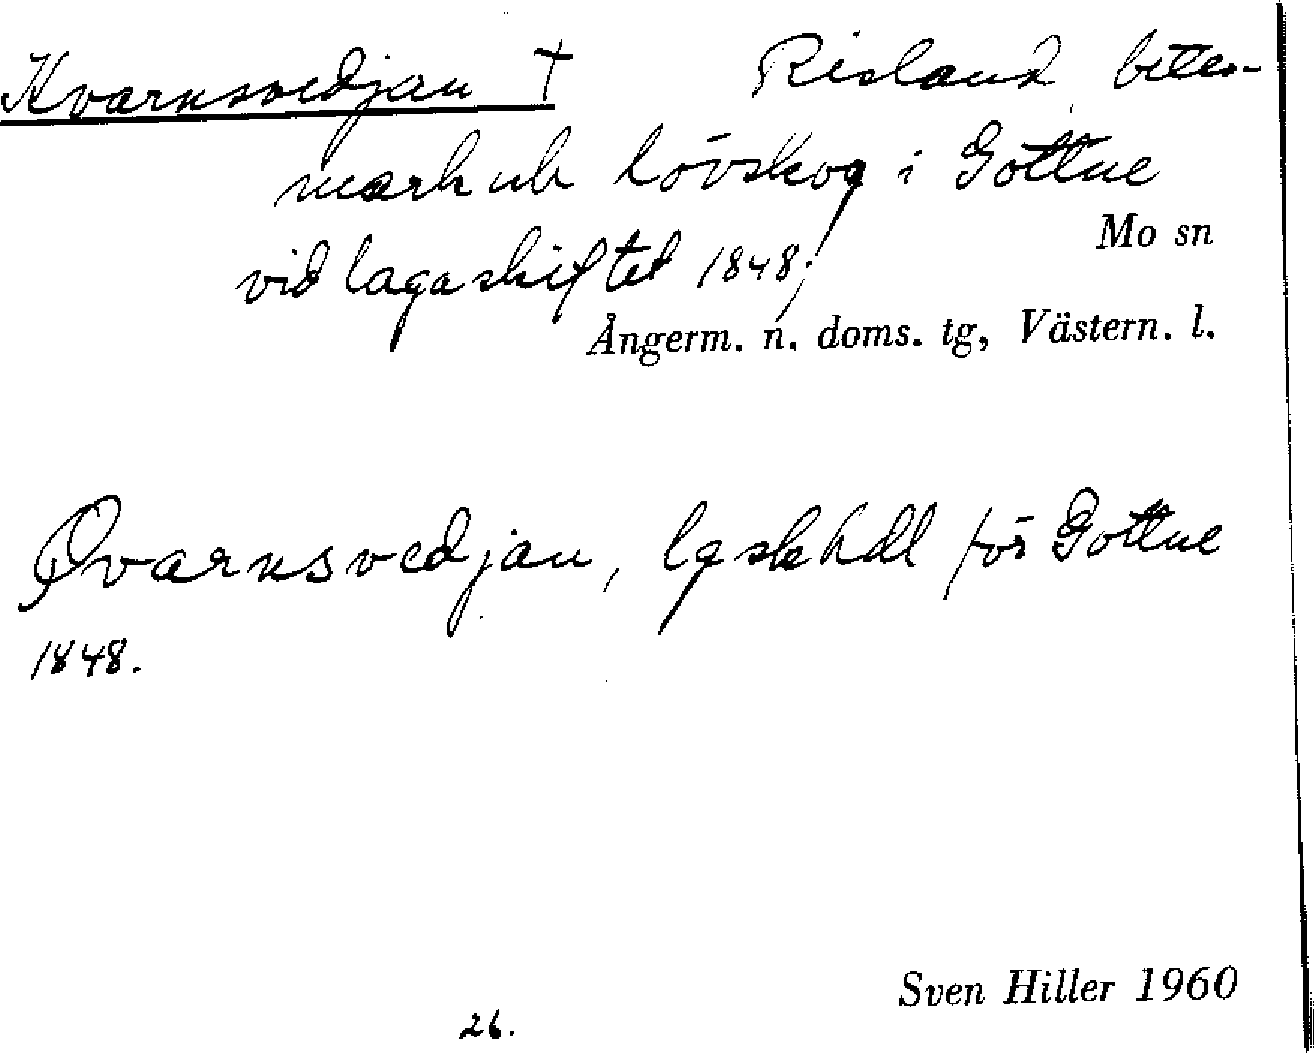 Kvarnsvedjan † Risland, betes-
mark och lövskog i Gottne
Mo sn
vid laga skiftet 1848;
Ångerm. n. doms. tg, Västern. l.
Qvarnsvedjan, lgskhdl för Gottne
1848.
Sven Hiller 1960
26.